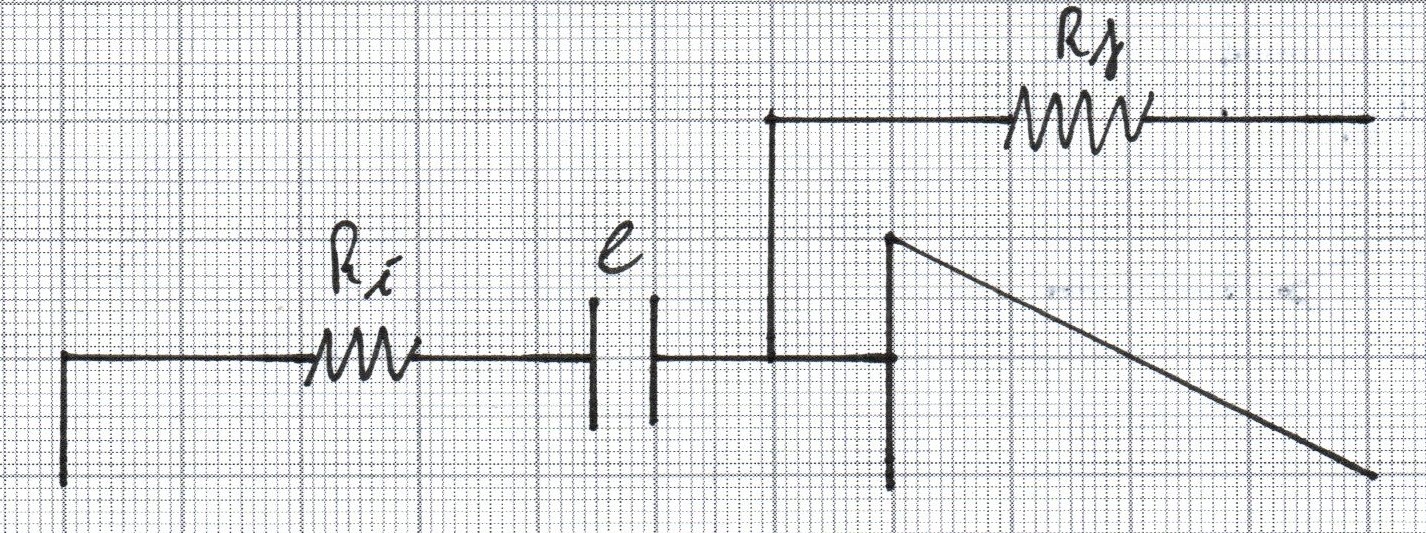 Rf
Ri
C